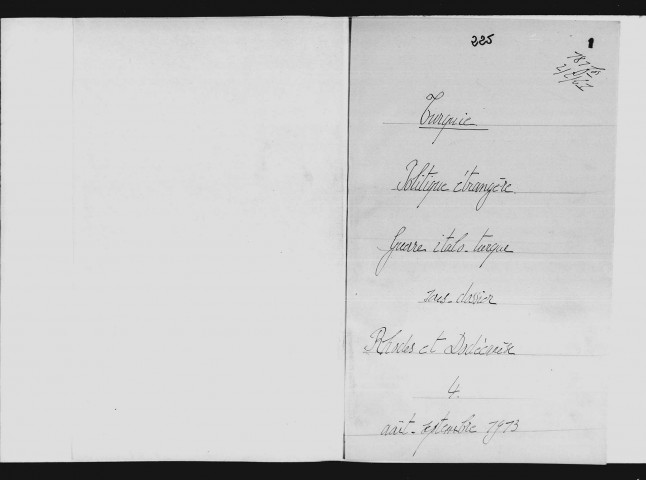 225 1
Turquie
Politique étrangère.
Guerre italo-turque
sous-dossier
Rhodes et Dodécanèse
4.
août-septembre 1913